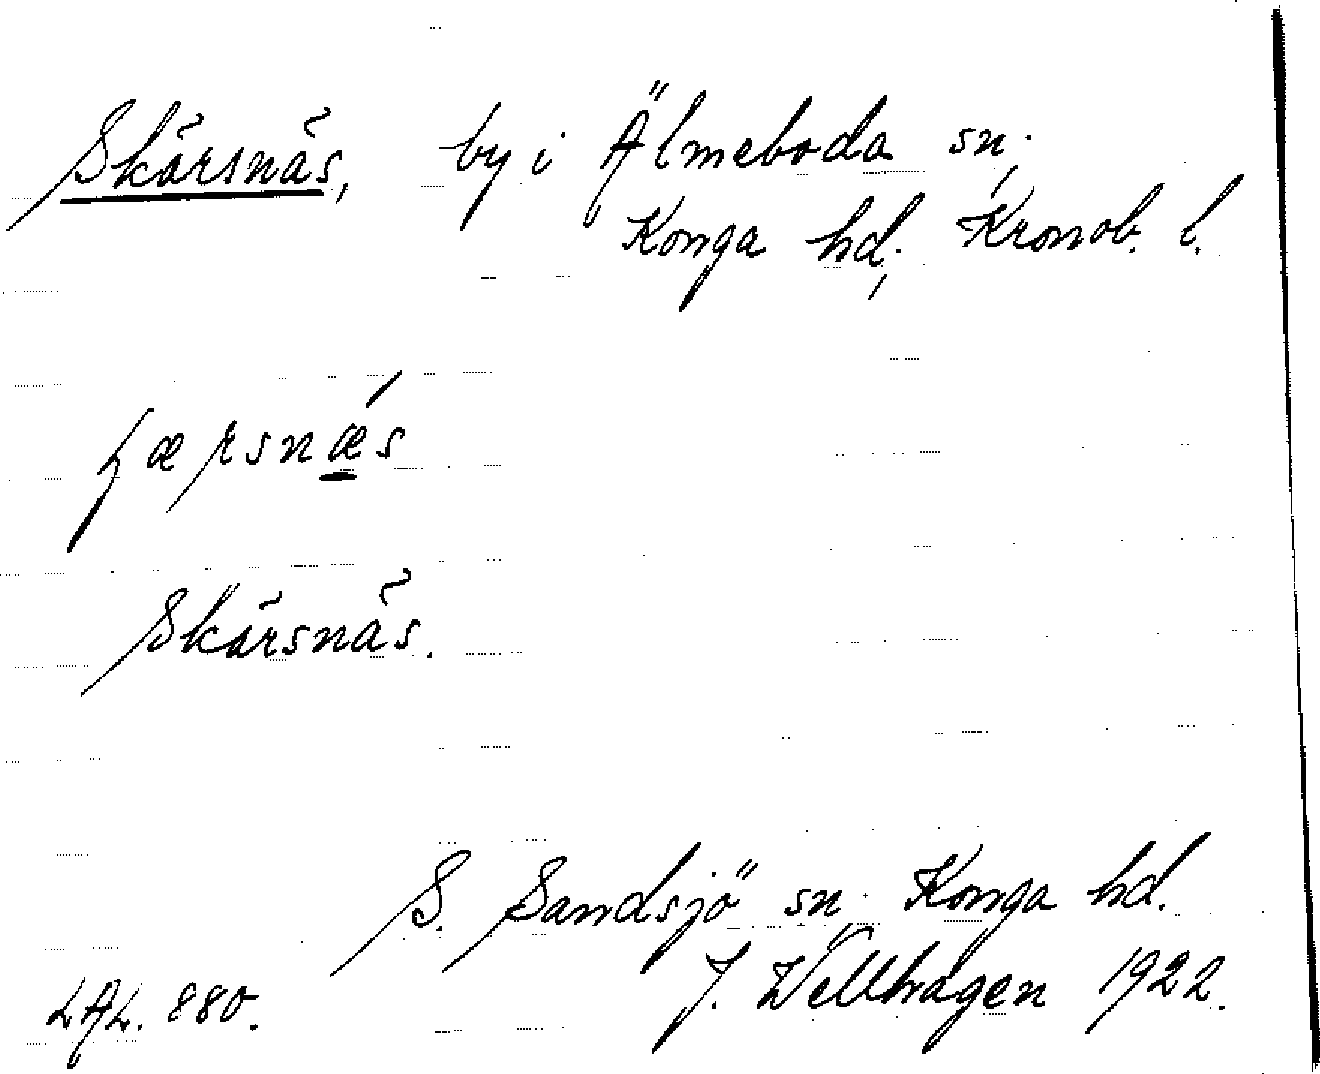 Skärsnäs, by i Älmeboda sn,
Konga hd, Kronob. l.
ʂærsnǽ̲s
Skärsnäs.
S. Sandsjö sn. Konga hd.
J. Wellhagen 1922.
LAL. 880.